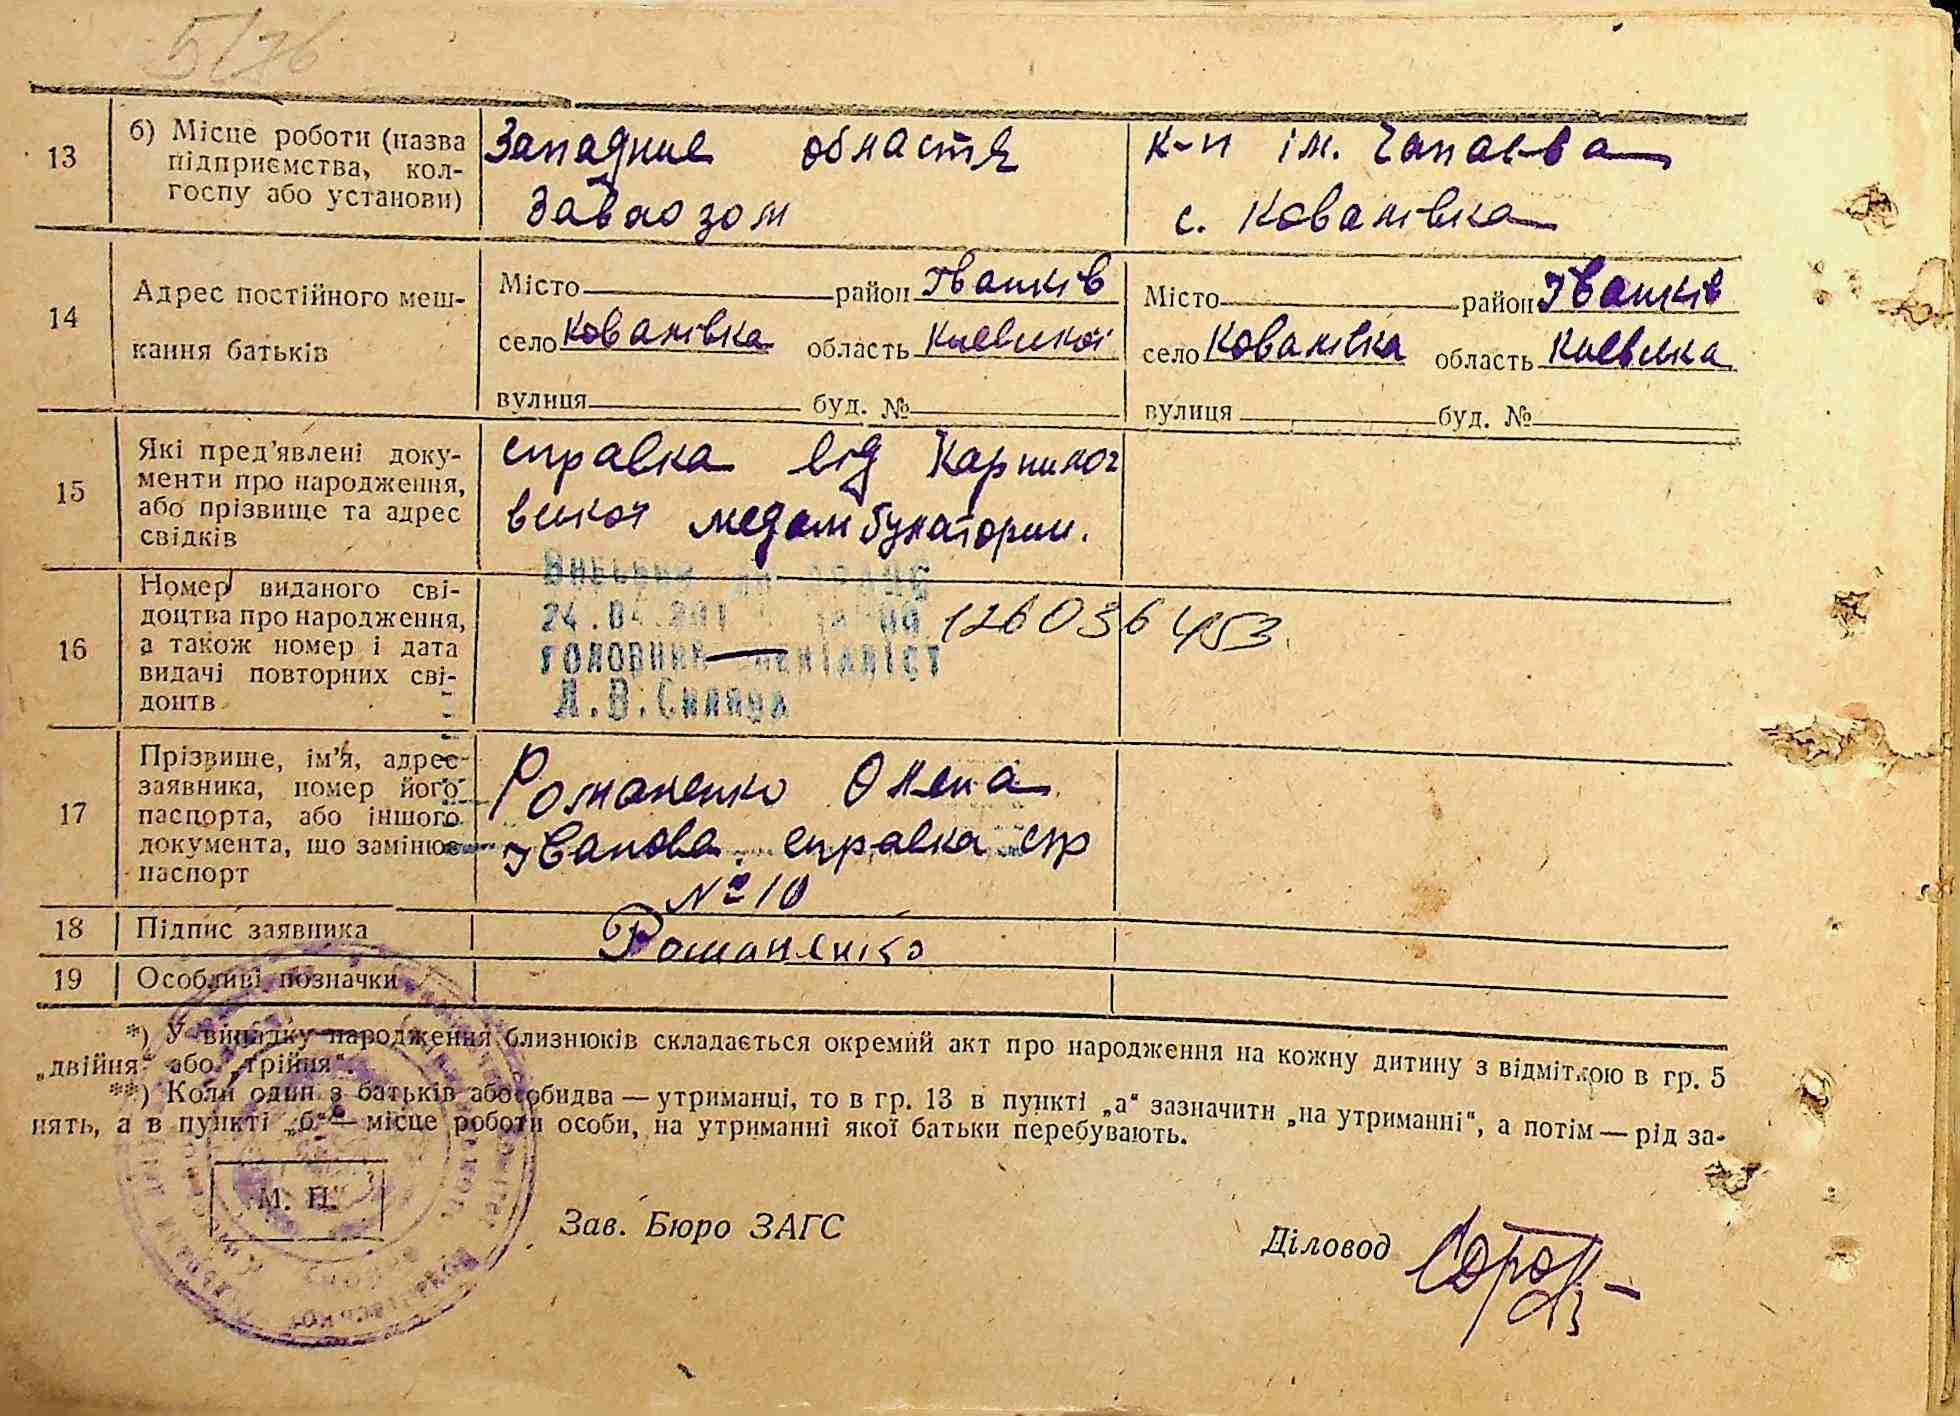 5/76
13
б) Місце роботи (назва
підприємства, кол-
госпу або установи)
Западние областя
к-п ім. Чапаєва
с. Кованівка
14
Адрес постійного меш-
кання батьків
Місто район Іванків
село Кованівка область Киевської
вулиця буд. №
Місто район Іванків
село Кованівка область Киевська
вулиця буд. №
15
Які пред'явлені доку-
менти про народження,
або прізвище та адрес
свідків
справка від
медамбулатории.
16
Номер виданого сві-
доцтва про народження,
а також номер і дата
видачі повторних сві-
доцтв
24.04.201
головний спеціаліст
126036453
17
Прізвище, ім'я, адрес
заявника, номер його
паспорта, або іншого
документа, що замінює
паспорт
Романенко Олена
Іванова справка спр
№ 10
18
Підпис заявника
Романенко
19
Особливі позначки
*) У випадку народження близнюків складається окремий акт про народження на кожну дитину з відміткою в гр. 5
„двійня“ або „трійня“.
**) Коли один з батьків або обидва — утриманці, то в гр. 13 в пункті „а“ зазначити „на утриманні“, а потім — рід за-
нять, а в пункті „б“ — місце роботи особи, на утриманні якої батьки перебувають.
М. П.
Зав. Бюро ЗАГС
Діловод